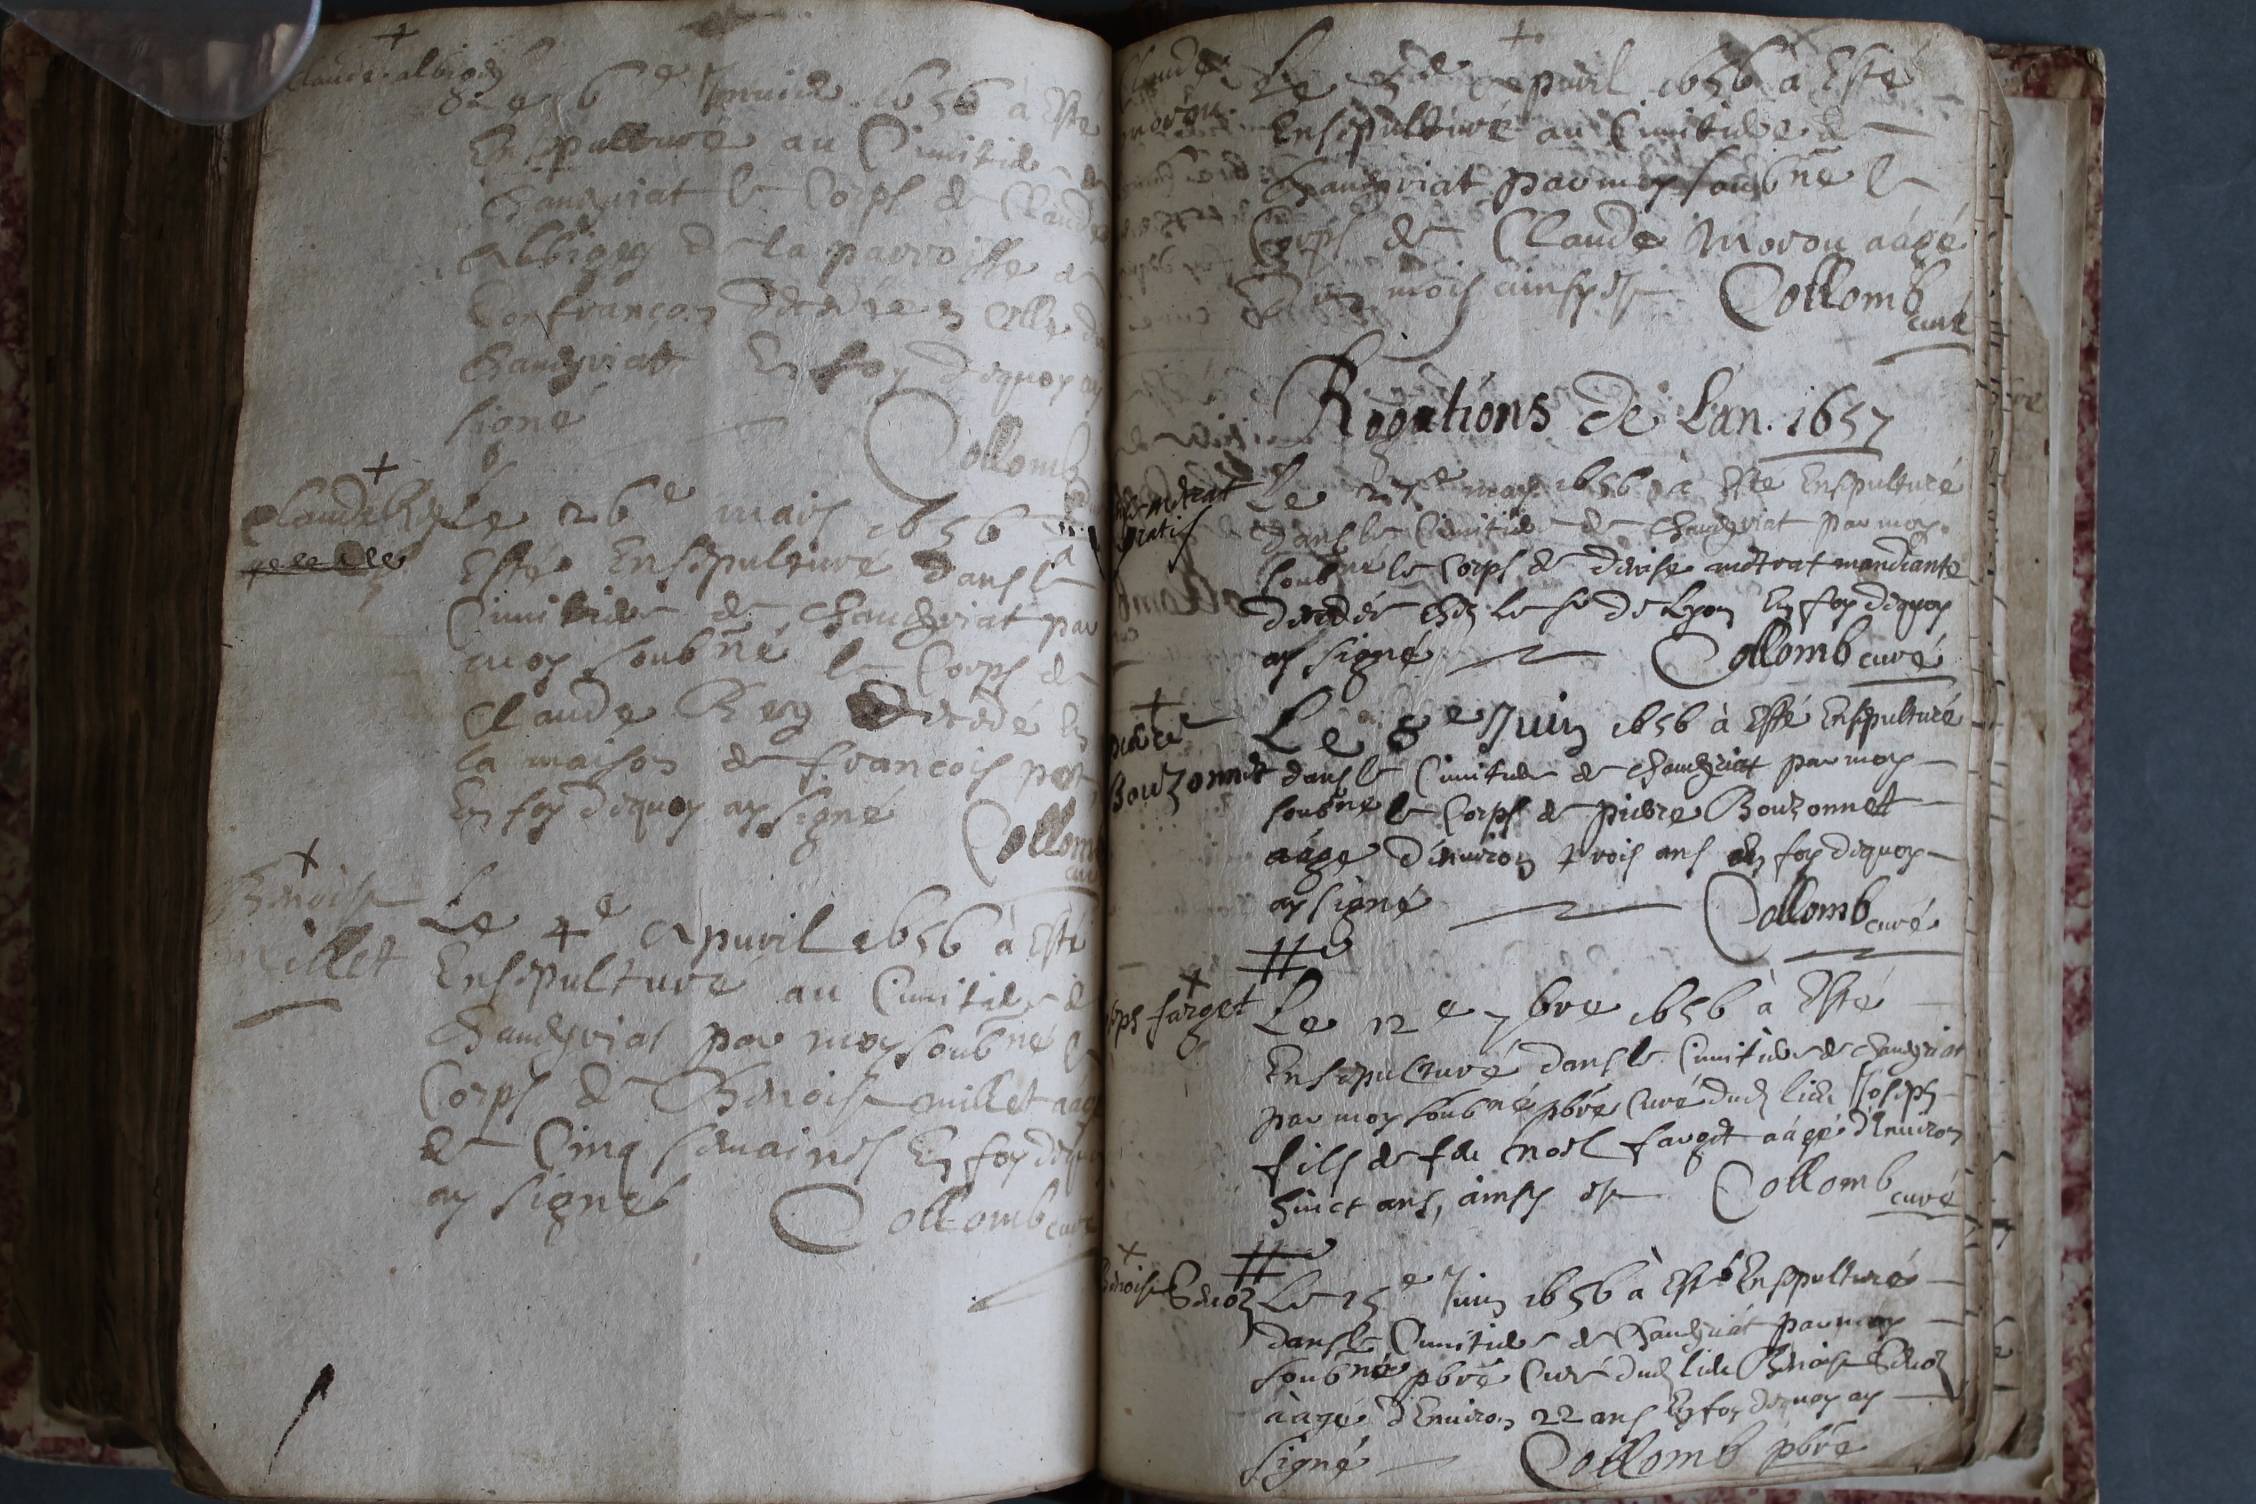 Claude albiogy
Le 6e Januier 1656 à Esté
Ensepulturé au Cimitiere de
Chaudzriat le Corps de Claude
Albiogy de la parroisse de
Confrancon decedé en Celle de
Chaudzriat En foy dequoy ay
signé
Collomb
Claude Rey
Le 26e mars 1656 à
Esté Ensepulturé dans le
Cimitiere de Chaudzriat par
moy soubné le Corps de
Claude Rey Decedé En
la maison de francois
En foy dequoy ay signé
Collomb
curé
Benoiste
millet
Le 4e Apuril 1656 à Esté
Ensepulture au Cimitiere de
Chaudzriat par moy soubné le
Corps de Benoiste millet aagé
de Cinq semaines En foy dequoy
ay signé
Collomb curé
Claude
morou
Le Apuril 1656 à Esté
Ensepulturé au Cimitiere de
Chaudzriat par moy soubné le
Corps de Claude Morou aágé
mois ainsy est
Collomb
curé
Rogations de L'an. 1657
metrat
gratis
Le may 1656 à Esté Ensepulturé
dans le Cimitiere de Chaudzriat par moy
soubné le Corps de denise metrat mandiante
decedée chez Le sr de Lyon En foy dequoy
ay signé Collomb curé
pierre
Bouzonnet
Le 8e Juin 1656 à Esté Ensepulturé
dans le Cimitiere de Chaudzriat par moy
soubné le Corps de pierre Bouzonnett
aáge d'enuiron trois ans En foy dequoy
ay signé Collomb curé
Joseph farget
Le 12e 7bre 1656 à Esté
Ensepulturé dans le Cimitiere de Chaudzriat
par moy soubné pbre Curé dud lieu Joseph
fils de feu Noel farget aágé d'Enuiron
huict ans, ainsy est Collomb curé
Benoiste
Le 15e Juin 1656 à Esté Ensepulturé
dans le Cimitiere de Chaudzriat par moy
soubné pbre Curé dud lieu Benoiste
aágé d'Enuiron 22 ans En foy dequoy ay
signé Collomb pbre